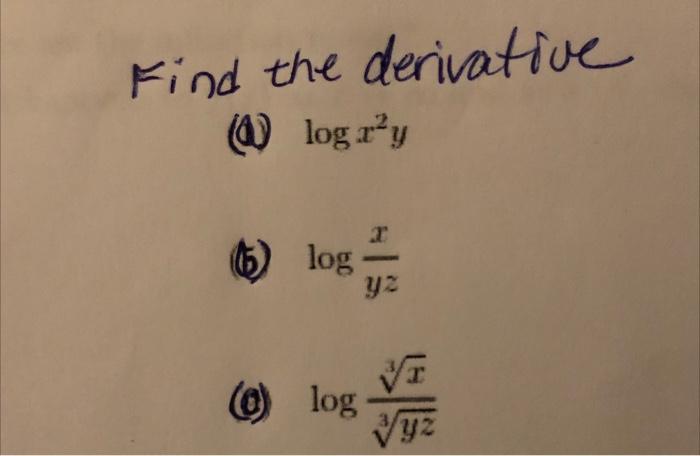 Find the derivative
(a) log x²y
(b) log x/yz
(c) log ∛x/∛yz